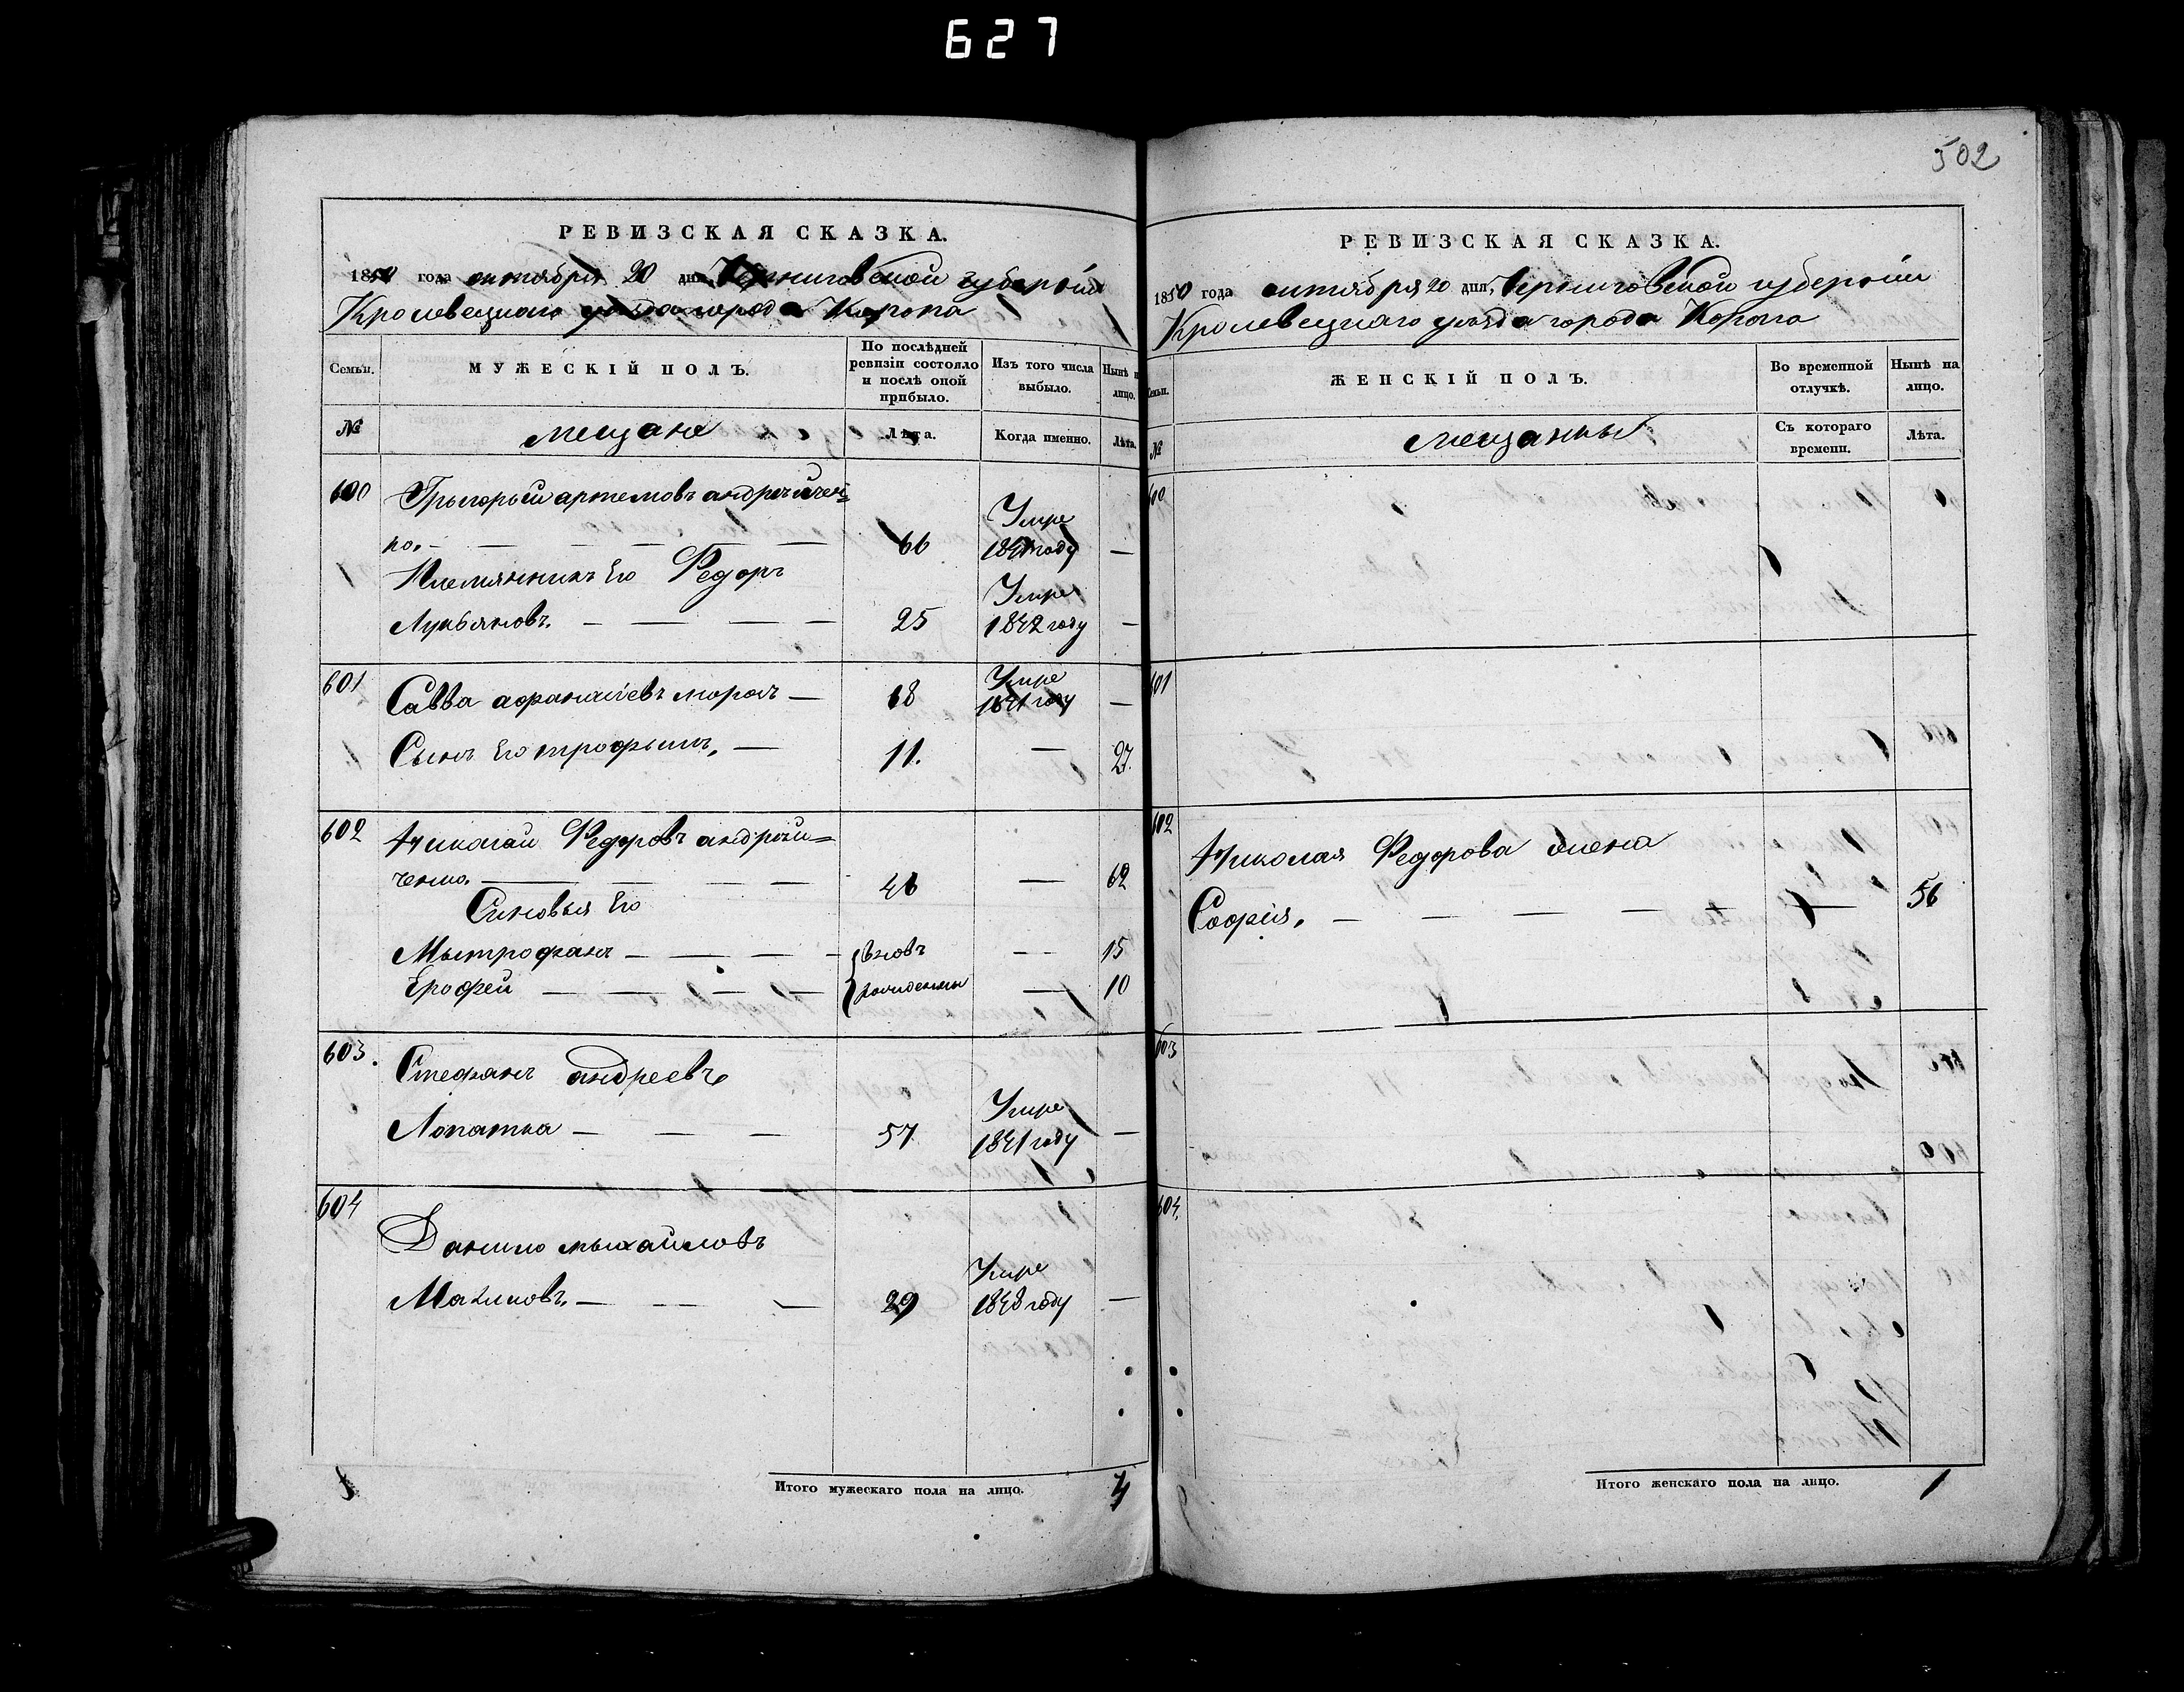 627
502
РЕВИЗСКАЯ СКАЗКА.
1850 года октября 20 дня, Черниговской губернии
Кролевецкаго уезда города Коропа
Семьи. МУЖЕСКІЙ ПОЛЪ. По послѣдней ревизіи состояло и послѣ оной прибыло. Изъ того числа выбыло. Нынѣ на лицо.
№ мещане Лѣта. Когда именно. Лѣта.
600 Грыгорый артемовъ андрейчен=
ко. — 66 Умре 1841 году —
Племянникъ Его Федоръ
Лукьяновъ. — 25 Умре 1842 году —
601 Савва афанасіевъ морозъ — 18 Умре 1841 году —
Сынъ Его трофымъ. — 11. — 27.
602 Николай Федоровъ андрей=
ченко. — 46 — 62
Сыновья Его
Мытрофанъ — { вновь — 15
Ерофей — { рожденны — 10
603. Стефанъ андреевъ
Лопатка — 57 Умре 1841 году —
604 Данило мыхайловъ
Маликовъ. — 29 Умре 1848 году —
Итого мужескаго пола на лицо. 3
РЕВИЗСКАЯ СКАЗКА.
1850 года октября 20 дня, Черниговской губерніи
Кролевецкаго уезда города Коропа
Семьи. ЖЕНСКІЙ ПОЛЪ. Во временной отлучкѣ. Нынѣ на лицо.
№ мещанки Съ котораго времени. Лѣта.
600
601
602 Николая Федорова жена
Софія. — 56
603
604.
Итого женскаго пола на лицо. 1